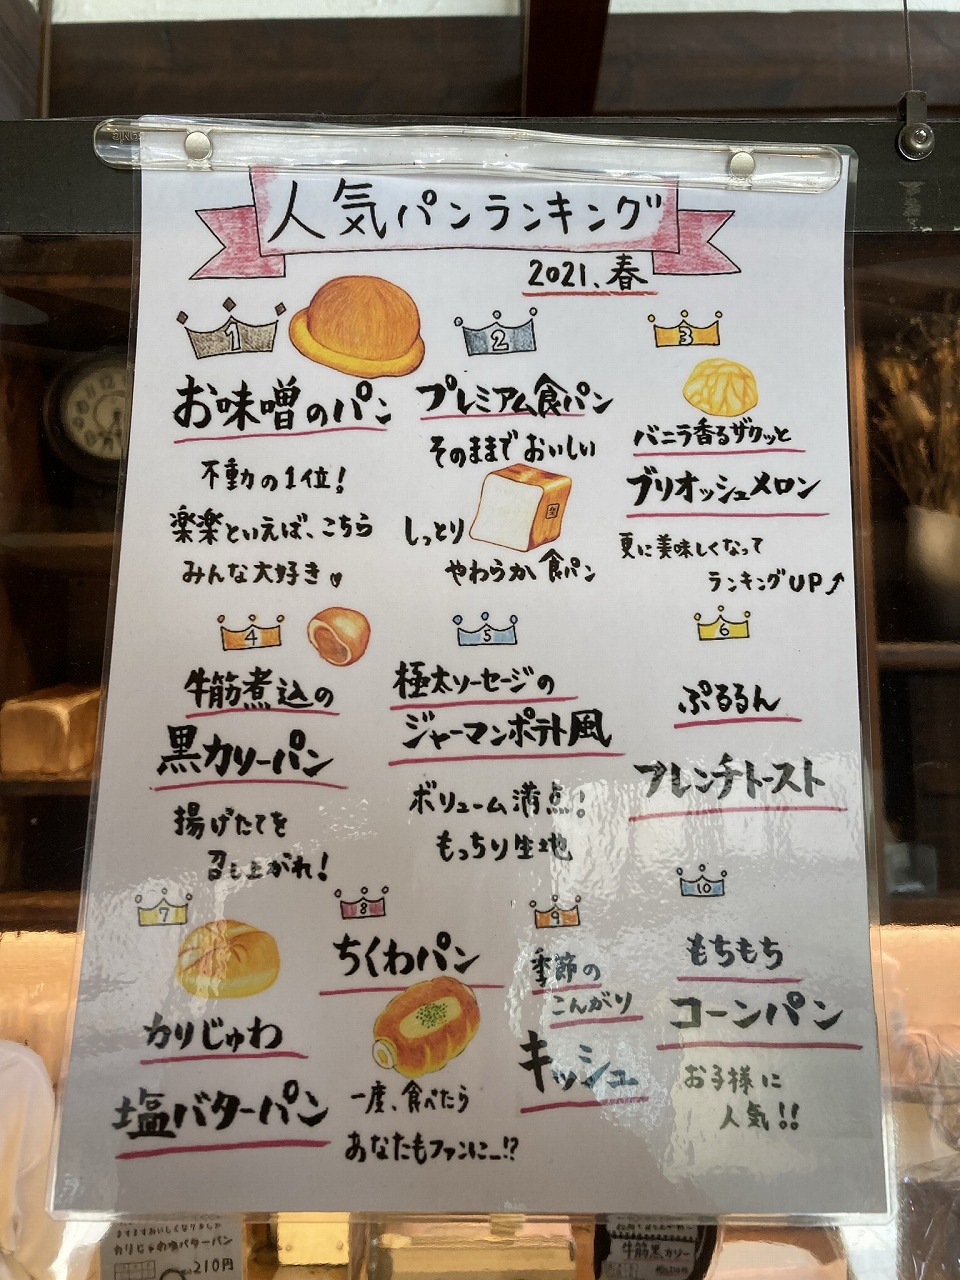 人気パンランキング
2021、春
1
お味噌のパン
不動の1位!
楽楽といえば、こちら
みんな大好き♥
2
プレミアム食パン
そのままで おいしい
しっとり
やわらか 食パン
3
バニラ香るザクッと
ブリオッシュメロン
更に美味しくなって
ランキングUP↗
4
牛筋煮込の
黒カリーパン
揚げたてを
召し上がれ!
5
極太ソーセージの
ジャーマンポテト風
ボリューム満点!
もっちり生地
6
ぷるるん
フレンチトースト
7
カリじゅわ
塩バターパン
8
ちくわパン
一度、食べたら
あなたもファンに…!?
9
季節の
こんがり
キッシュ
10
もちもち
コーンパン
お子様に
人気!!
ますますおいしくなりました
カリじゅわ塩バターパン
210円
牛筋黒カリー